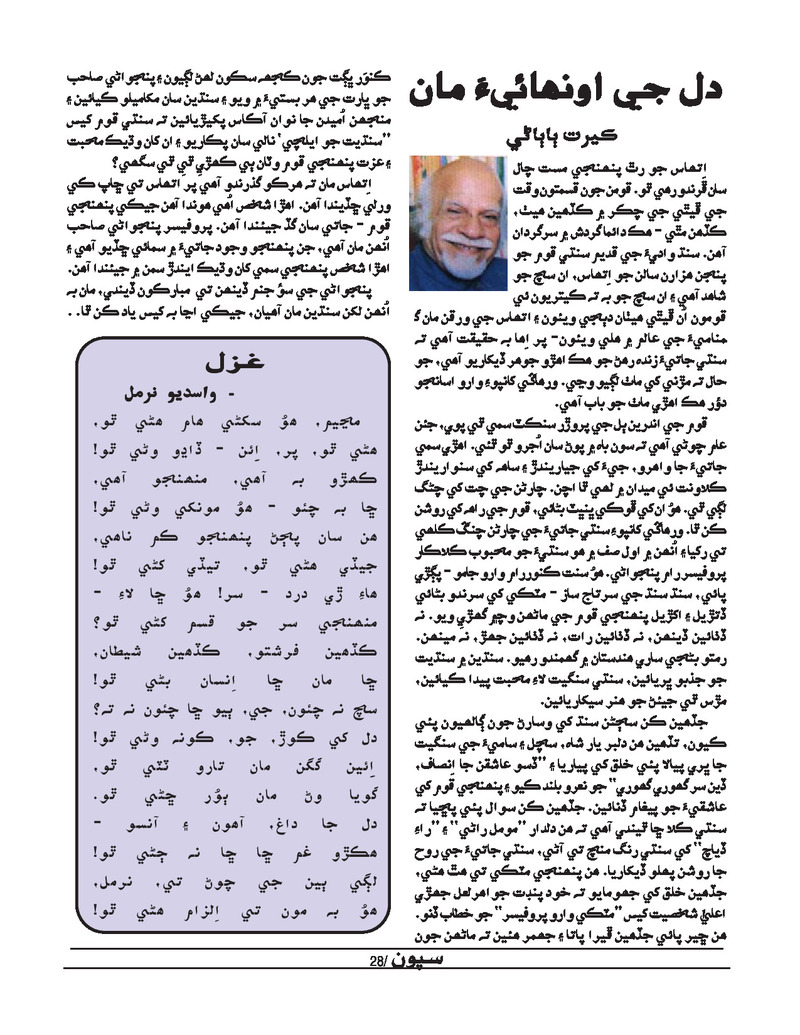 دل جي اونهائيءَ مان
ڪيرت ٻاٻاڻي
اتهاس جو رٿ پنهنجي مست چال
سان ڦرندو رهي ٿو. قومن جون قسمتون وقت
جي ڦيٿي جي چڪر ۾ ڪڏهين هيٺ،
ڪڏهن مٿي - هڪ دائما گردش ۾ سرگردان
آهن. سنڌو واديءَ جي قديم سنڌي قوم جو
پنجن هزارن سالن جو اِتهاس، ان سچ جو
شاهد آهي ۽ ان سچ جو به ته ڪيتريون ئي
قومون اُن ڦيٿي هيٺان دٻجي ويئون ۽ اتهاس جي ورقن مان گ
منامیءَ جي عالم ۾ هلي ويئون- پر اِها به حقيقت آهي ته
سنڌي جاتيءَ زنده رهڻ جو هڪ اهڙو جوهر ڏيکاريو آهي، جو
حال ته مڙني کي مات لڳيو وڃي. ورهاڱي کانپوءِ وارو اسانجو
دؤر هڪ اهڙي مات جو باب آهي.
قوم جي اندرين ٻل جي پروڙ سنڪٽ سمي ٿي پوي، جئن
عام چوڻي آهي ته سون باهه ۾ پوڻ سان اُجرو ٿو ٿئي. اهڙي سمي
جاتيءَ جا واهرو، جيءَ کي جياريندڙ ۽ ساهه کي سنواريندڙ
ڪلاونت ئي ميدان ۾ لهي ٿا اچن. چارڻن جي چت کي چٽڪ
لڳي ٿي. هوُ ان کي ڦوڪي ڀنڀٽ بڻائي، قوم جي راهه کي روشن
ڪن ٿا. ورهاڱي کانپوءِ سنڌي جاتيءَ جي چارڻن چنگ ڪلهي
تي رکيا ۽ اُنهن ۾ اول صف ۾ هو سنڌيءَ جو محبوب ڪلاڪار
پروفيسر رام پنجواڻي. هوُ سنت ڪنور رام وارو جامو - پڳڙي
پائي، سنڌ سنڌ جي سرتاج ساز - مٽڪي کي سرندو بڻائي
ڏتڙيل ۽ اکڙيل پنهنجي قوم جي ماڻهن وچ ۾ گهڙي ويو. نه
ڏنائين ڏينهن، نه ڏنائين رات، نه ڏنائين جهڙ، نه مينهن.
رمتو بڻجي ساري هندستان ۾ گهمندو رهيو. سنڌين ۾ سنڌيت
جو جذبو ڀريائين، سنڌي سنگيت لاءِ محبت پيدا ڪيائين،
مڙس ٿي جيئڻ جو هنر سيکاريائين.
جڏهين ڪن سڄڻن سنڌ کي وسارڻ جون ڳالهيون پئي
ڪيون، تڏهين هن دلبر يار شاهه، سچل ۽ ساميءَ جي سنگيت
جا ڀري پيالا پئي خلق کي پياريا ۽ ”ڏسو عاشقن جا اِنصاف،
ڏين سر گهوري گهوري“ جو نعرو بلند ڪيو ۽ پنهنجي قوم کي
عاشقيءَ جو پيغام ڏنائين. جڏهين ڪن سوال پئي پڇيا ته
سنڌي ڪلا ڇا ٿيندي آهي ته هن دلدار ”مومل راڻي“ ۽ ”راءِ
ڏياچ“ کي سنڌي رنگ منچ تي آڻي، سنڌي جاتيءَ جي روح
جا روشن پهلو ڏيکاريا. هن پنهنجي مٽڪي تي هٿ هڻي،
جڏهين خلق کي جهومايو ته خود پنڊت جواهر لعل جهڙي
اعليٰ شخصيت کيس ”مٽڪي وارو پروفيسر“ جو خطاب ڏنو.
هن ڇير پائي جڏهين ڦيرا پاتا ۽ جهمر هنين ته ماڻهن جون
ڪنور ڀڳت جون ڪنجهه سڪون لهڻ لڳيون ۽ پنجواڻي صاحب
جو ڀارت جي هر بستيءَ ۾ ويو ۽ سنڌين سان مکاميلو ڪيائين ۽
منجهن اُميدن جا نوان آڪاس پکيڙيائين ته سنڌي قوم کيس
”سنڌيت جو ايلچي‘ نالي سان پڪاريو ۽ ان کان وڌيڪ محبت
۽ عزت پنهنجي قوم وٽان ٻي ڪهڙي ٿي ٿي سگهي؟
اِتهاس مان ته هرڪو گذرندو آهي پر اتهاس تي ڇاپ ڪي
ورلي ڇڏيندا آهن. اهڙا شخص اُهي هوندا آهن جيڪي پنهنجي
قوم - جاتي سان گڏ جيئندا آهن. پروفيسر پنجواڻي صاحب
اُنهن مان آهي، جن پنهنجو وجود جاتيءَ ۾ سمائي ڇڏيو آهي ۽
اهڙا شخص پنهنجي سمي کان وڌيڪ ايندڙ سمن ۾ جيئندا آهن.
پنجواڻي جي سؤ جنم ڏينهن تي مبارڪون ڏيندي، مان به
اُنهن لکن سنڌين مان آهيان، جيڪي اڃا به کيس ياد ڪن ٿا. .
غزل
- واسديو نرمل
مڃيم، هوُ سکڻي هام هڻي ٿو،
هڻي ٿو، پر، اِئن - ڏاڍو وڻي ٿو!
ڪهڙو به آهي، منهنجو آهي،
ڇا به چئو - هوُ مونکي وڻي ٿو!
هن سان پڄڻ پنهنجو ڪم ناهي،
جيڏي هڻي ٿو، تيڏي کڻي ٿو!
هاءِ ڙي درد - سر! هوُ ڇا لاءِ -
منهنجي سر جو قسم کڻي ٿو؟
ڪڏهين فرشتو، ڪڏهين شيطان،
ڇا مان ڇا اِنسان بڻي ٿو!
سچ نه چئون، جي، ٻيو ڇا چئون نه ته؟
دل کي ڪوڙ، جو، ڪونه وڻي ٿو!
اِئين گگن مان تارو ٽٽي ٿو،
گويا وڻ مان ٻوُر ڇڻي ٿو.
دل جا داغ، آهون ۽ آنسو -
هڪڙو غم ڇا ڇا نه ڄڻي ٿو!
لڳي ٻين جي چوڻ تي، نرمل،
هوُ به مون تي اِلزام هڻي ٿو!
سپون /28